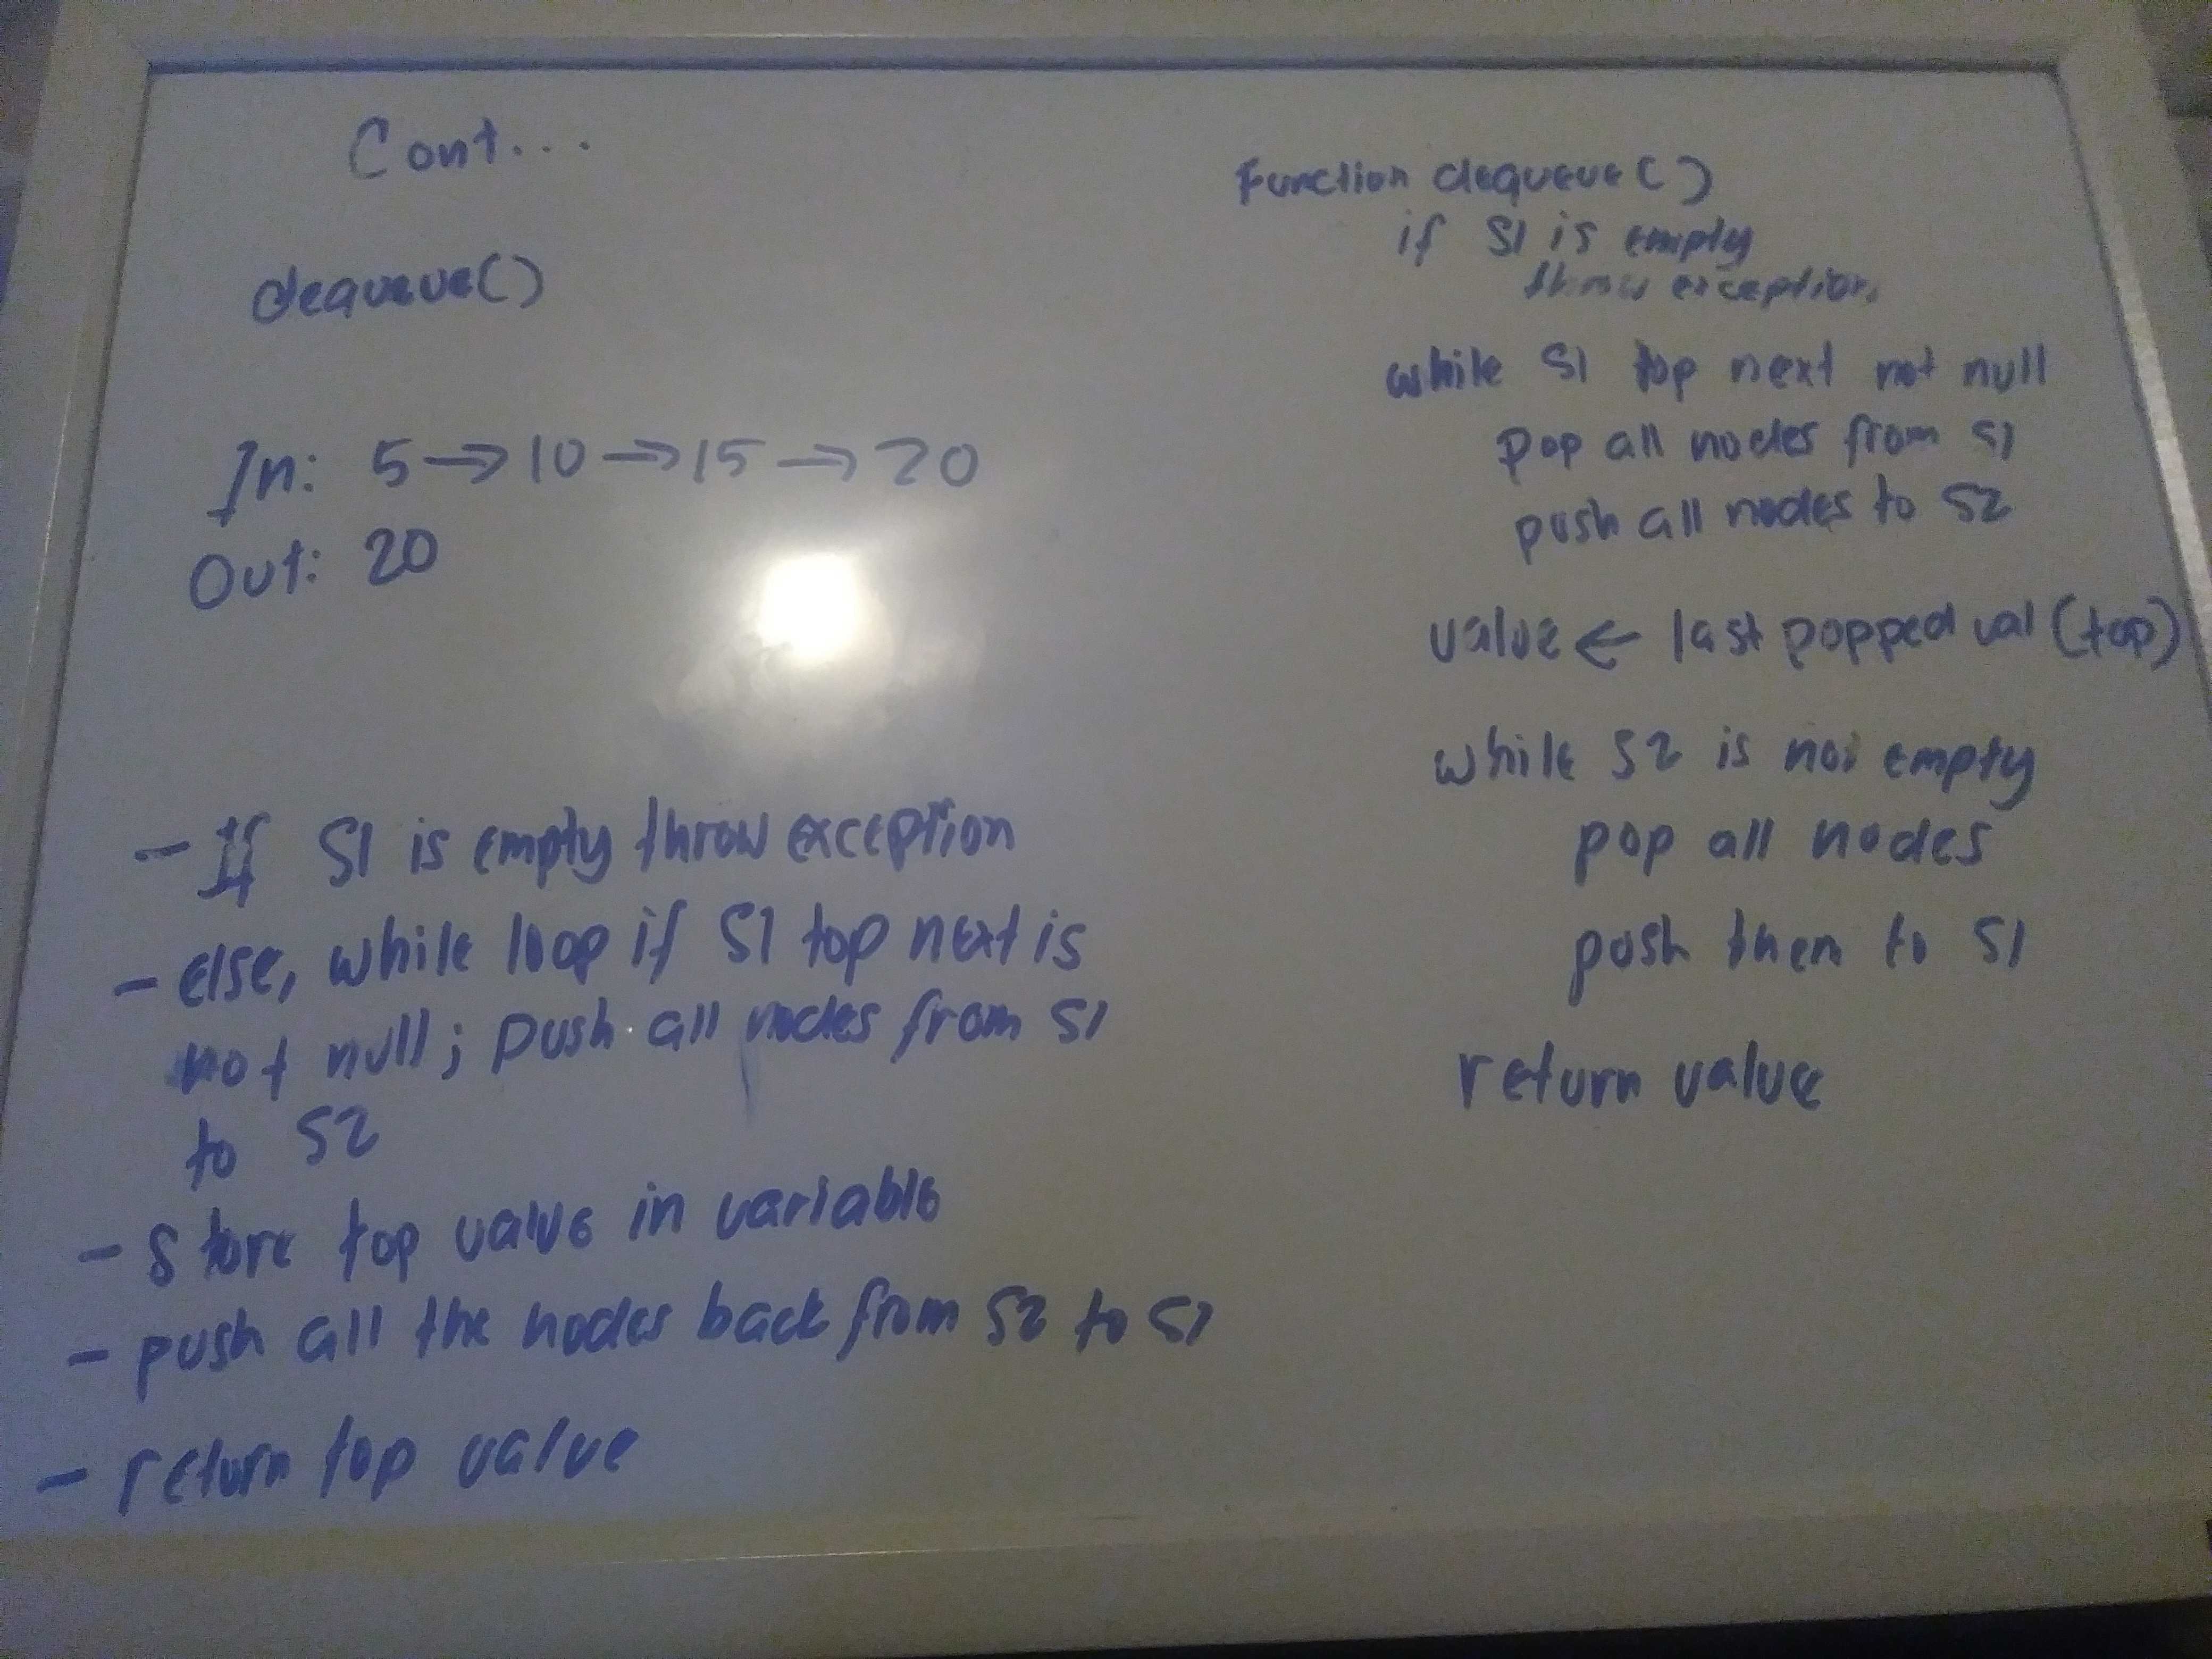 Cont...
dequeue()
In: 5→10→15→20
Out: 20
- If S1 is empty throw exception
- else, while loop if S1 top next is
not null; push all nodes from S1
to S2
- Store top value in variable
- push all the nodes back from S2 to S1
- return top value
Function dequeue()
if S1 is empty
throw exception
while S1 top next not null
pop all nodes from S1
push all nodes to S2
value ← last popped val (top)
while S2 is not empty
pop all nodes
push them to S1
return value